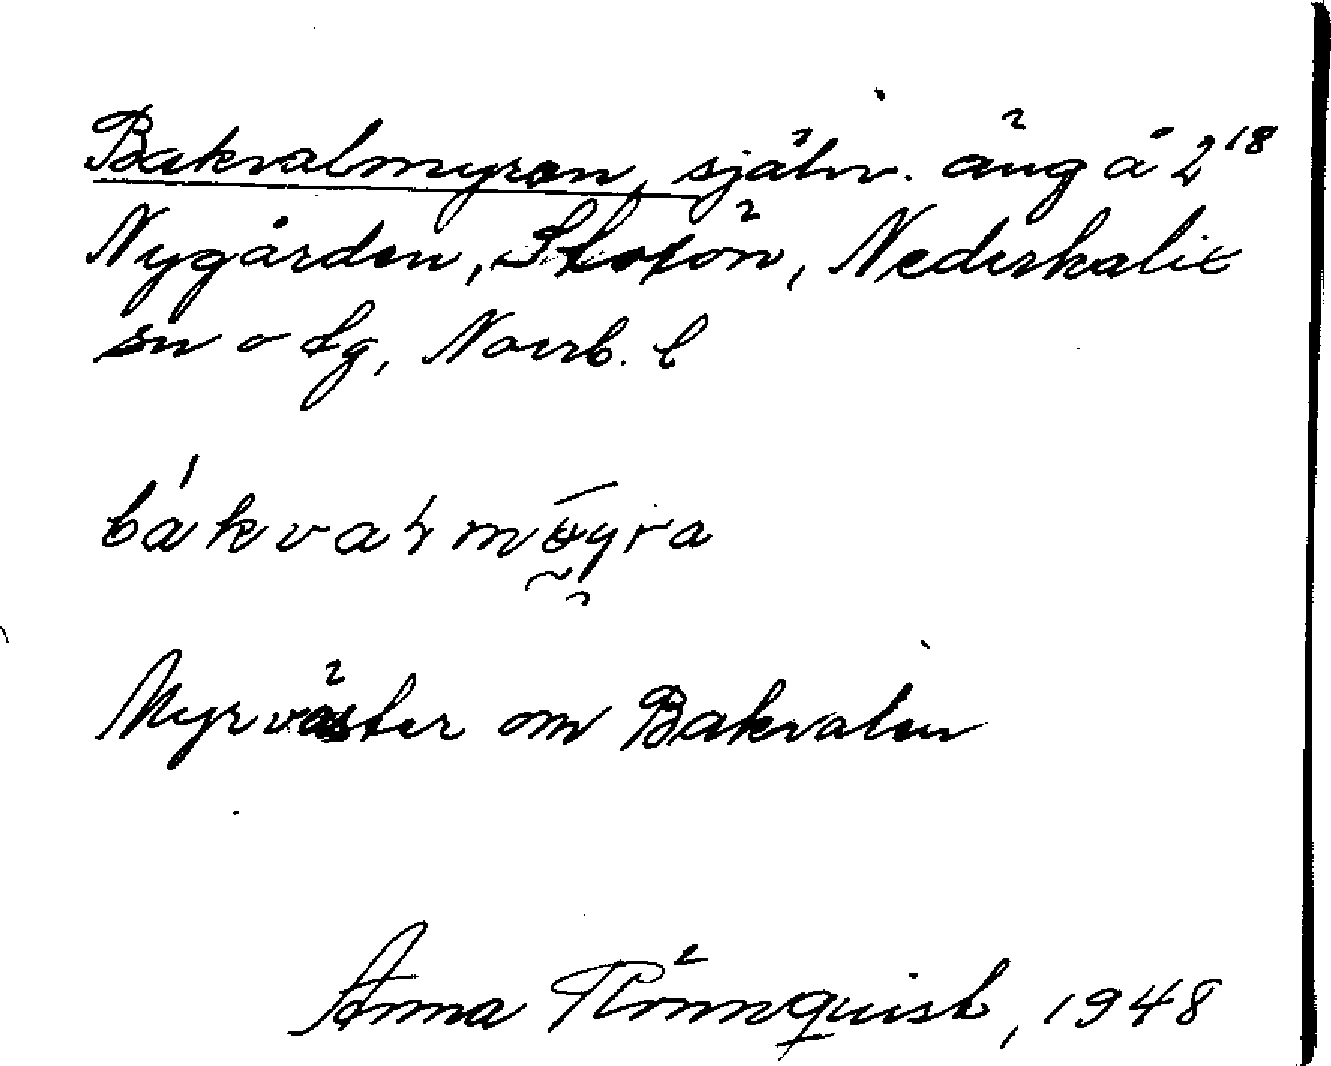 Bakvalmyren, själv. äng å 2¹⁸
Nygården, Storön, Nederkalix
sn o tg, Norrb. l
Myr väster om Bakvalen
Anna Rönnquist, 1948